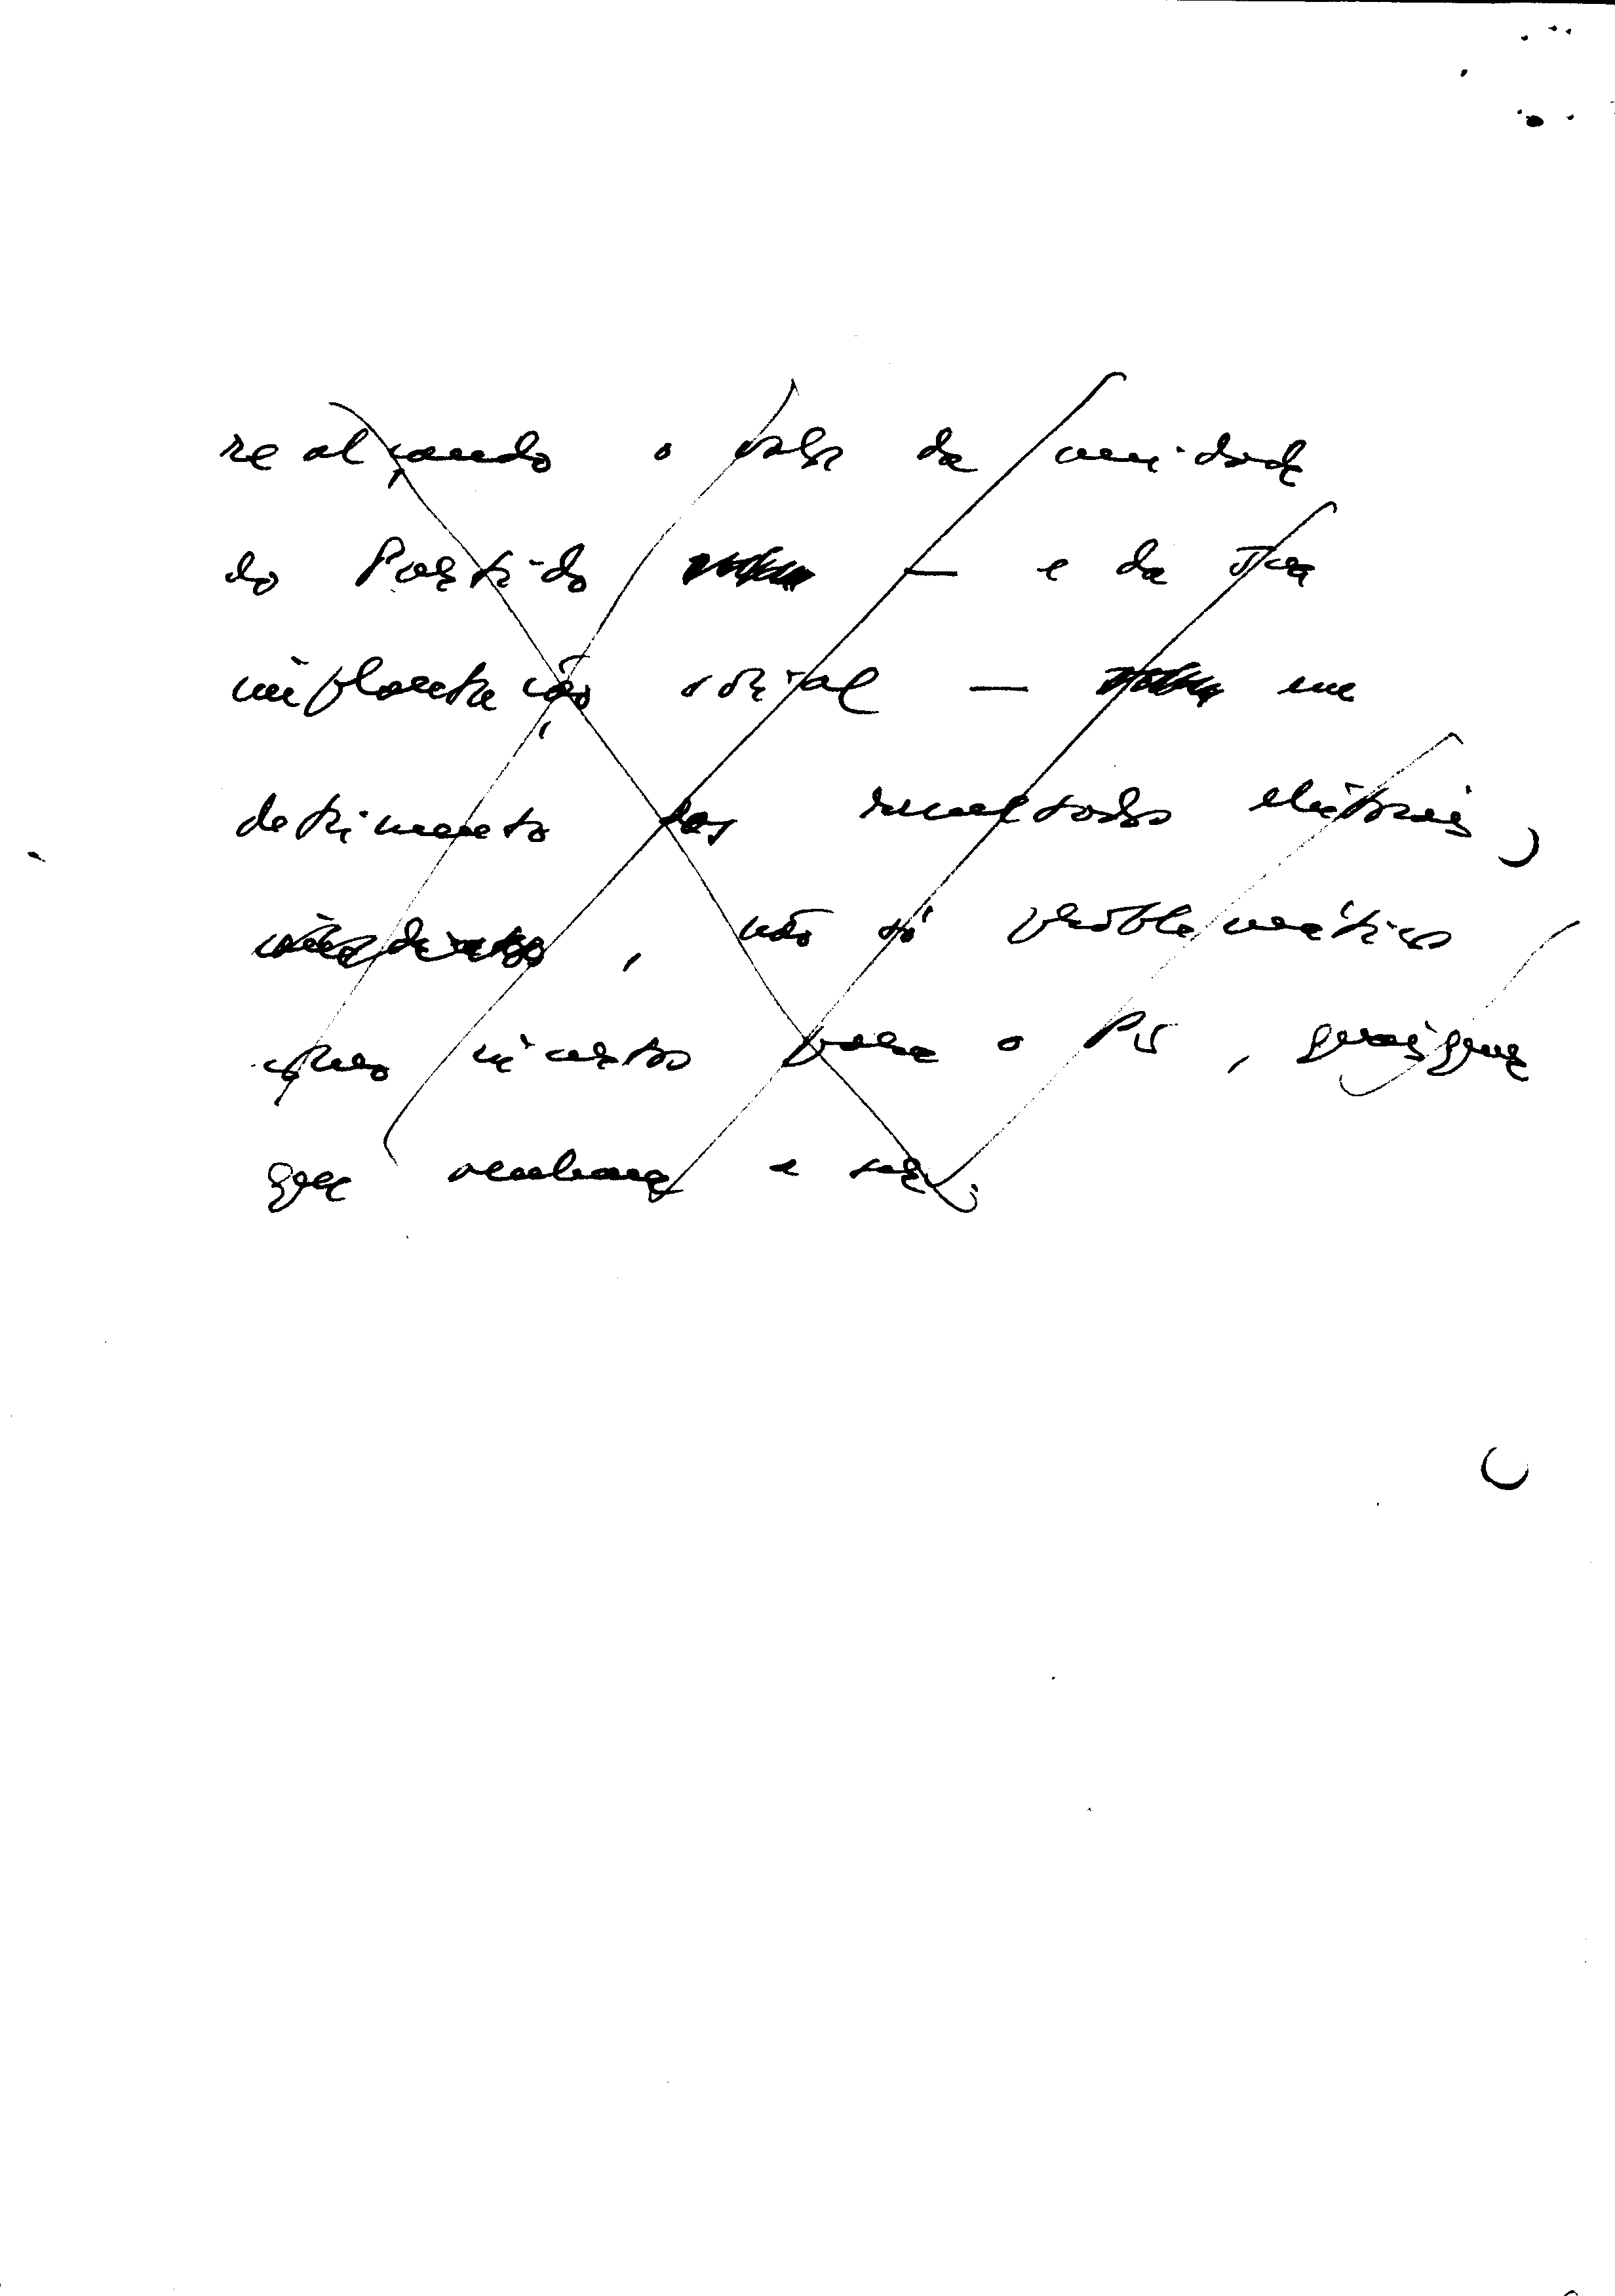 realçando o valor da unidade
do Partido — e da sua
implantação social — em
detrimento dos resultados eleitorais,
, não só problemáticos
incertos para o PS, quaisquer
que venham a ser;